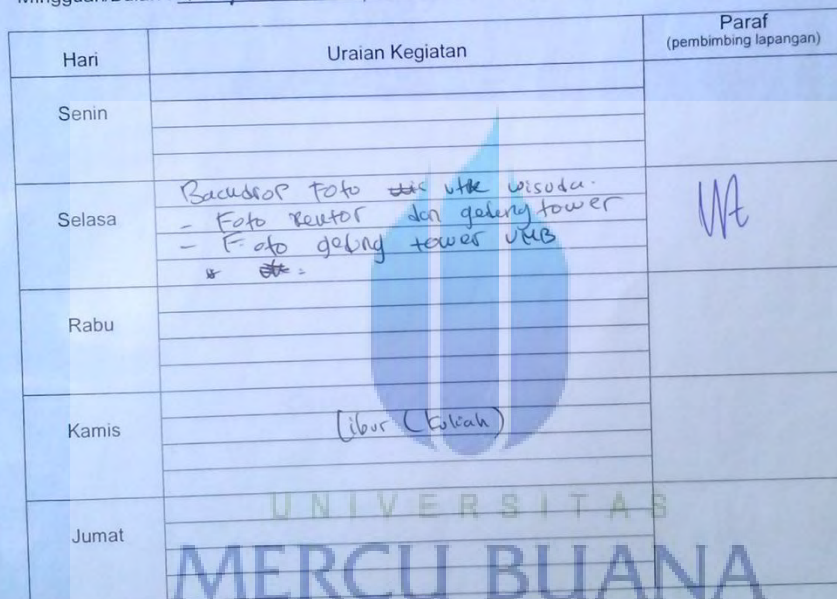 Hari
Uraian Kegiatan
Paraf
(pembimbing lapangan)
Senin
Selasa
Backdrop Foto utk wisuda.
- Foto rektor dan gedung tower
- Foto gedung tower UMB
Rabu
Kamis
Libur (kuliah)
Jumat
UNIVERSITAS
MERCU BUANA